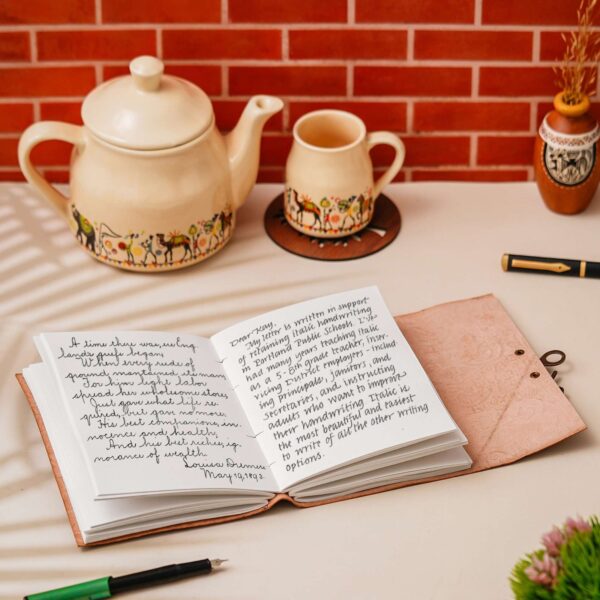 A time there was, ere
lands griefs began,
When every rood of
ground maintained its man;
For him light labor
spread her wholesome stores,
Just gave what life re
quired, but gave no more.
His best companions, in-
nocence and health;
And his best riches, ig-
norance of wealth.
Louisa
May 19, 1892.
Dear Kay,
My letter is written in support
of retaining italic handwriting
in Portland Public Schools. I've
had many years teaching italic
as a 5-8th grade teacher, inser-
vicing District employers - includ
ing principals, janitors, and
secretaries, and instructing
adults who want to improve
their handwriting. Italic is
the most beautiful and easiest
to write of all the other writing
options.